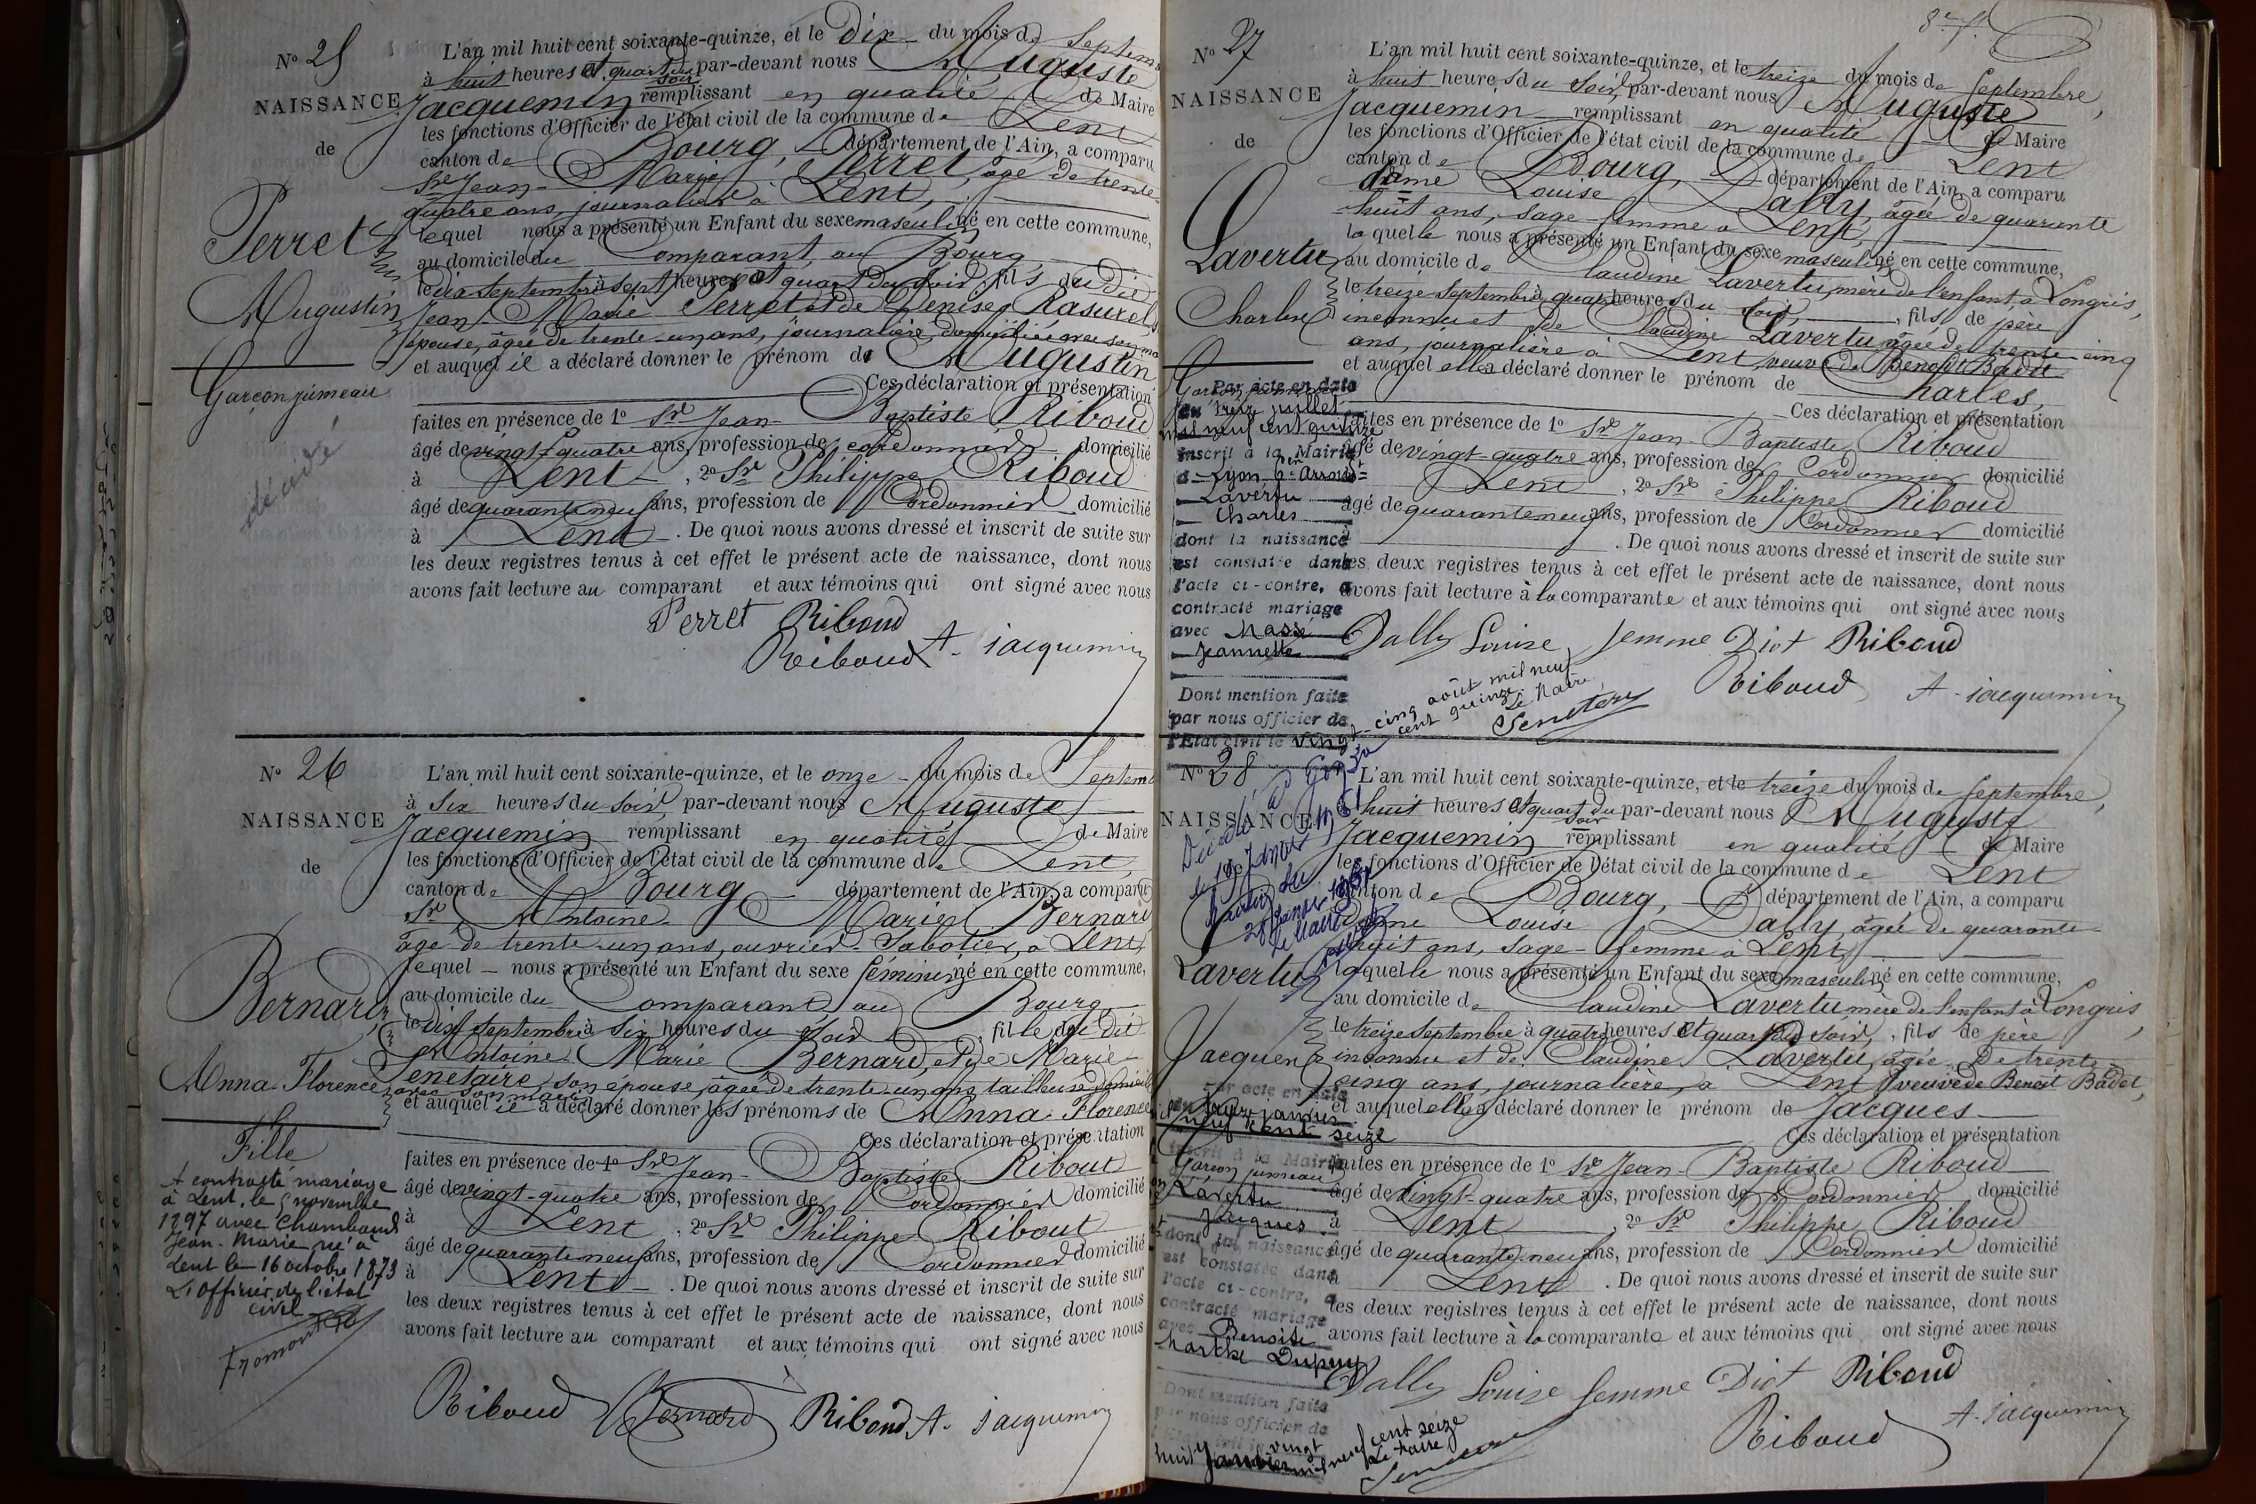 No 25
NAISSANCE
de
Perret
Augustin
Garçon jumeau
décédé
L'an mil huit cent soixante-quinze, et le dix du mois de Septem
à huit heures et quart du soir par-devant nous Auguste
Jacquemin remplissant en qualité de Maire
les fonctions d'Officier de l'état civil de la commune de Lent
canton de Bourg, département de l'Ain, a comparu
Sr Jean-Marie Perret, âgé de trente
quatre ans, journalier à Lent,
lequel nous a présenté un Enfant du sexe masculin né en cette commune,
au domicile du Comparant, au Bourg
le dix Septembre à sept heures et quart du soir, fils du dit
Jean-Marie Perret et de Denise Rasurel
épouse, âgée de trente-un ans, journalière domiciliée avec son ma
et auquel il a déclaré donner le prénom de Augustin
Ces déclaration et présentation
faites en présence de 1o Sr Jean-Baptiste Riboud
âgé de vingt-quatre ans, profession de cordonnier domicilié
à Lent, 2o Sr Philippe Riboud
âgé de quarante neuf ans, profession de Cordonnier domicilié
à Lent. De quoi nous avons dressé et inscrit de suite sur
les deux registres tenus à cet effet le présent acte de naissance, dont nous
avons fait lecture au comparant et aux témoins qui ont signé avec nous
Perret Riboud
Riboud A. jacquemin
No 26
NAISSANCE
de
Bernard
Anna Florence
Fille
A contracté mariage
à Lent, le 5 novembre
1897 avec Chambaud
Jean-Marie né à
Lent le 16 octobre 1873
L'officier de l'état
civil
L'an mil huit cent soixante-quinze, et le onze du mois de Septem
à Six heures du soir, par-devant nous Auguste
Jacquemin remplissant en qualité de Maire
les fonctions d'Officier de l'état civil de la commune de Lent,
canton de Bourg département de l'Ain, a comparu
Sr Antoine Marie Bernard
âgé de trente-un ans, ouvrier Sabotier, à Lent,
lequel nous a présenté un Enfant du sexe féminin né en cette commune,
au domicile du Comparant, au Bourg
le dix septembre à six heures du soir, fille du dit
Antoine Marie Bernard et de Marie
Senetaire, son épouse, âgée de trente-un ans, tailleuse domicil
avec son mari
et auquel il a déclaré donner les prénoms de Anna Florence
Ces déclaration et présentation
faites en présence de 1o Sr Jean-Baptiste Riboud
âgé de vingt-quatre ans, profession de Cordonnier domicilié
à Lent, 2o Sr Philippe Riboud
âgé de quarante neuf ans, profession de Cordonnier domicilié
à Lent. De quoi nous avons dressé et inscrit de suite sur
les deux registres tenus à cet effet le présent acte de naissance, dont nous
avons fait lecture au comparant et aux témoins qui ont signé avec nous
Riboud Bernard Riboud A. jacquemin
No 27
NAISSANCE
de
Lavertu
Charles
Par acte en date
du treize juillet
mil neuf cent quinze
inscrit à la Mairie
d Lyon 6e Arrondt
Lavertu
Charles
dont la naissance
est constatée dans
l'acte ci-contre, a
contracté mariage
avec
Jeannette
Dont mention faite
par nous officier de
l'Etat civil le vingt-cinq août mil neuf
cent quinze
Le Maire,
L'an mil huit cent soixante-quinze, et le treize du mois de Septembre,
à huit heures du soir, par-devant nous Auguste
Jacquemin remplissant en qualité de Maire
les fonctions d'Officier de l'état civil de la commune de Lent
canton de Bourg, département de l'Ain, a comparu
dame Louise Dally, âgée de quarante
huit ans, sage-femme à Lent,
laquelle nous a présenté un Enfant du sexe masculin né en cette commune,
au domicile de Claudine Lavertu, mère de l'enfant, à Longris,
le treize Septembre à quatre heures du soir, fils de père
inconnu et de Claudine Lavertu, âgée de trente-cinq
ans, journalière à Lent, veuve de Benoit Badet
et auquel elle a déclaré donner le prénom de Charles,
Ces déclaration et présentation
faites en présence de 1o Sr Jean-Baptiste Riboud
âgé de vingt-quatre ans, profession de Cordonnier domicilié
Lent, 2o Sr Philippe Riboud
âgé de quarante neuf ans, profession de Cordonnier domicilié
à. De quoi nous avons dressé et inscrit de suite sur
les deux registres tenus à cet effet le présent acte de naissance, dont nous
avons fait lecture à la comparante et aux témoins qui ont signé avec nous
Dally Louise femme Diot Riboud
Riboud A. jacquemin
No 28
NAISSANCE
Lavertu
Jacques
Par acte en date
janvier
neuf cent seize
inscrit à la Mairie
Garçon jumeau
Lavertu
Jacques
dont la naissance
est constatée dans
l'acte ci-contre, a
contracté mariage
avec Benoite
Dupuy
Dont mention faite
par nous officier de
vingt
huit Janvier mil neuf cent seize
Le Maire
L'an mil huit cent soixante-quinze, et le treize du mois de Septembre,
huit heures et quart du soir par-devant nous Auguste
Jacquemin remplissant en qualité de Maire
les fonctions d'Officier de l'état civil de la commune de Lent
canton de Bourg, département de l'Ain, a comparu
dame Louise Dally, âgée de quarante
huit ans, sage-femme à Lent,
laquelle nous a présenté un Enfant du sexe masculin né en cette commune,
au domicile de Claudine Lavertu, mère de l'enfant à Longris,
le treize Septembre à quatre heures et quart du soir, fils de père
inconnu et de Claudine Lavertu, âgée de trente
cinq ans, journalière, à Lent, veuve de Benoit Badet,
et auquel elle a déclaré donner le prénom de Jacques
Ces déclaration et présentation
faites en présence de 1o Sr Jean-Baptiste Riboud
âgé de vingt-quatre ans, profession de Cordonnier domicilié
à Lent, 2o Sr Philippe Riboud
âgé de quarante neuf ans, profession de Cordonnier domicilié
à Lent. De quoi nous avons dressé et inscrit de suite sur
les deux registres tenus à cet effet le présent acte de naissance, dont nous
avons fait lecture à la comparante et aux témoins qui ont signé avec nous
Dally Louise femme Diot Riboud
Riboud A. jacquemin